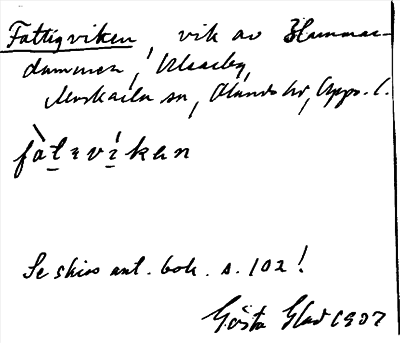 Fattigviken, vik av Hammar-
dammen,
Morkarla sn, Olands hd, Upps. l.
fàtivíken
Se skiss ant. bok. s. 102!
Gösta Glad 1907